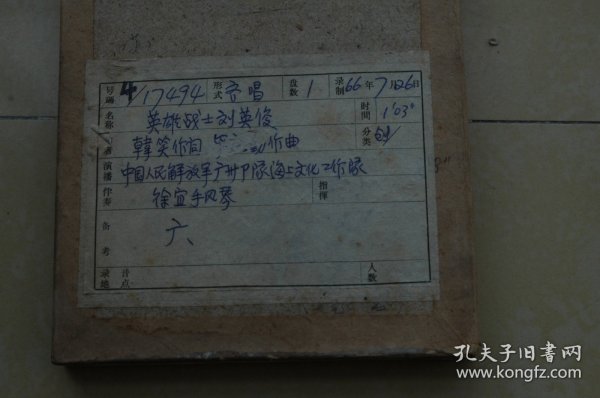 号编 17494 形式 齐唱 盘数 1 录制 66年7月26日
名称 英雄战士刘英俊 时间 1'03"
韩笑作词 作曲 分类 创
演播 中国人民解放军广州部队海上文化工作队
伴奏 徐宜手风琴 指挥
备考 六、
录地 音点 人数
孔夫子旧书网
www.kongfz.com